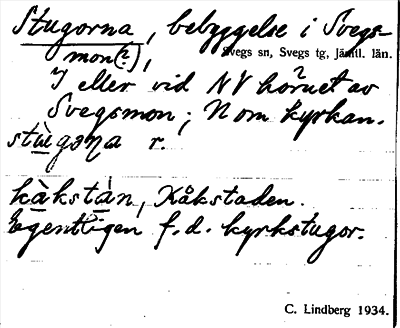 Stugorna, bebyggelse i Svegs-
mon(?),
Svegs sn, Svegs tg, Jämtl. län.
I eller vid NV hörnet av
Svegsmon; N om kyrkan.
stùgɷɳa r.
kàkstàn, Kåkstaden.
Egentligen f.d. kyrkstugor.
C. Lindberg 1934.